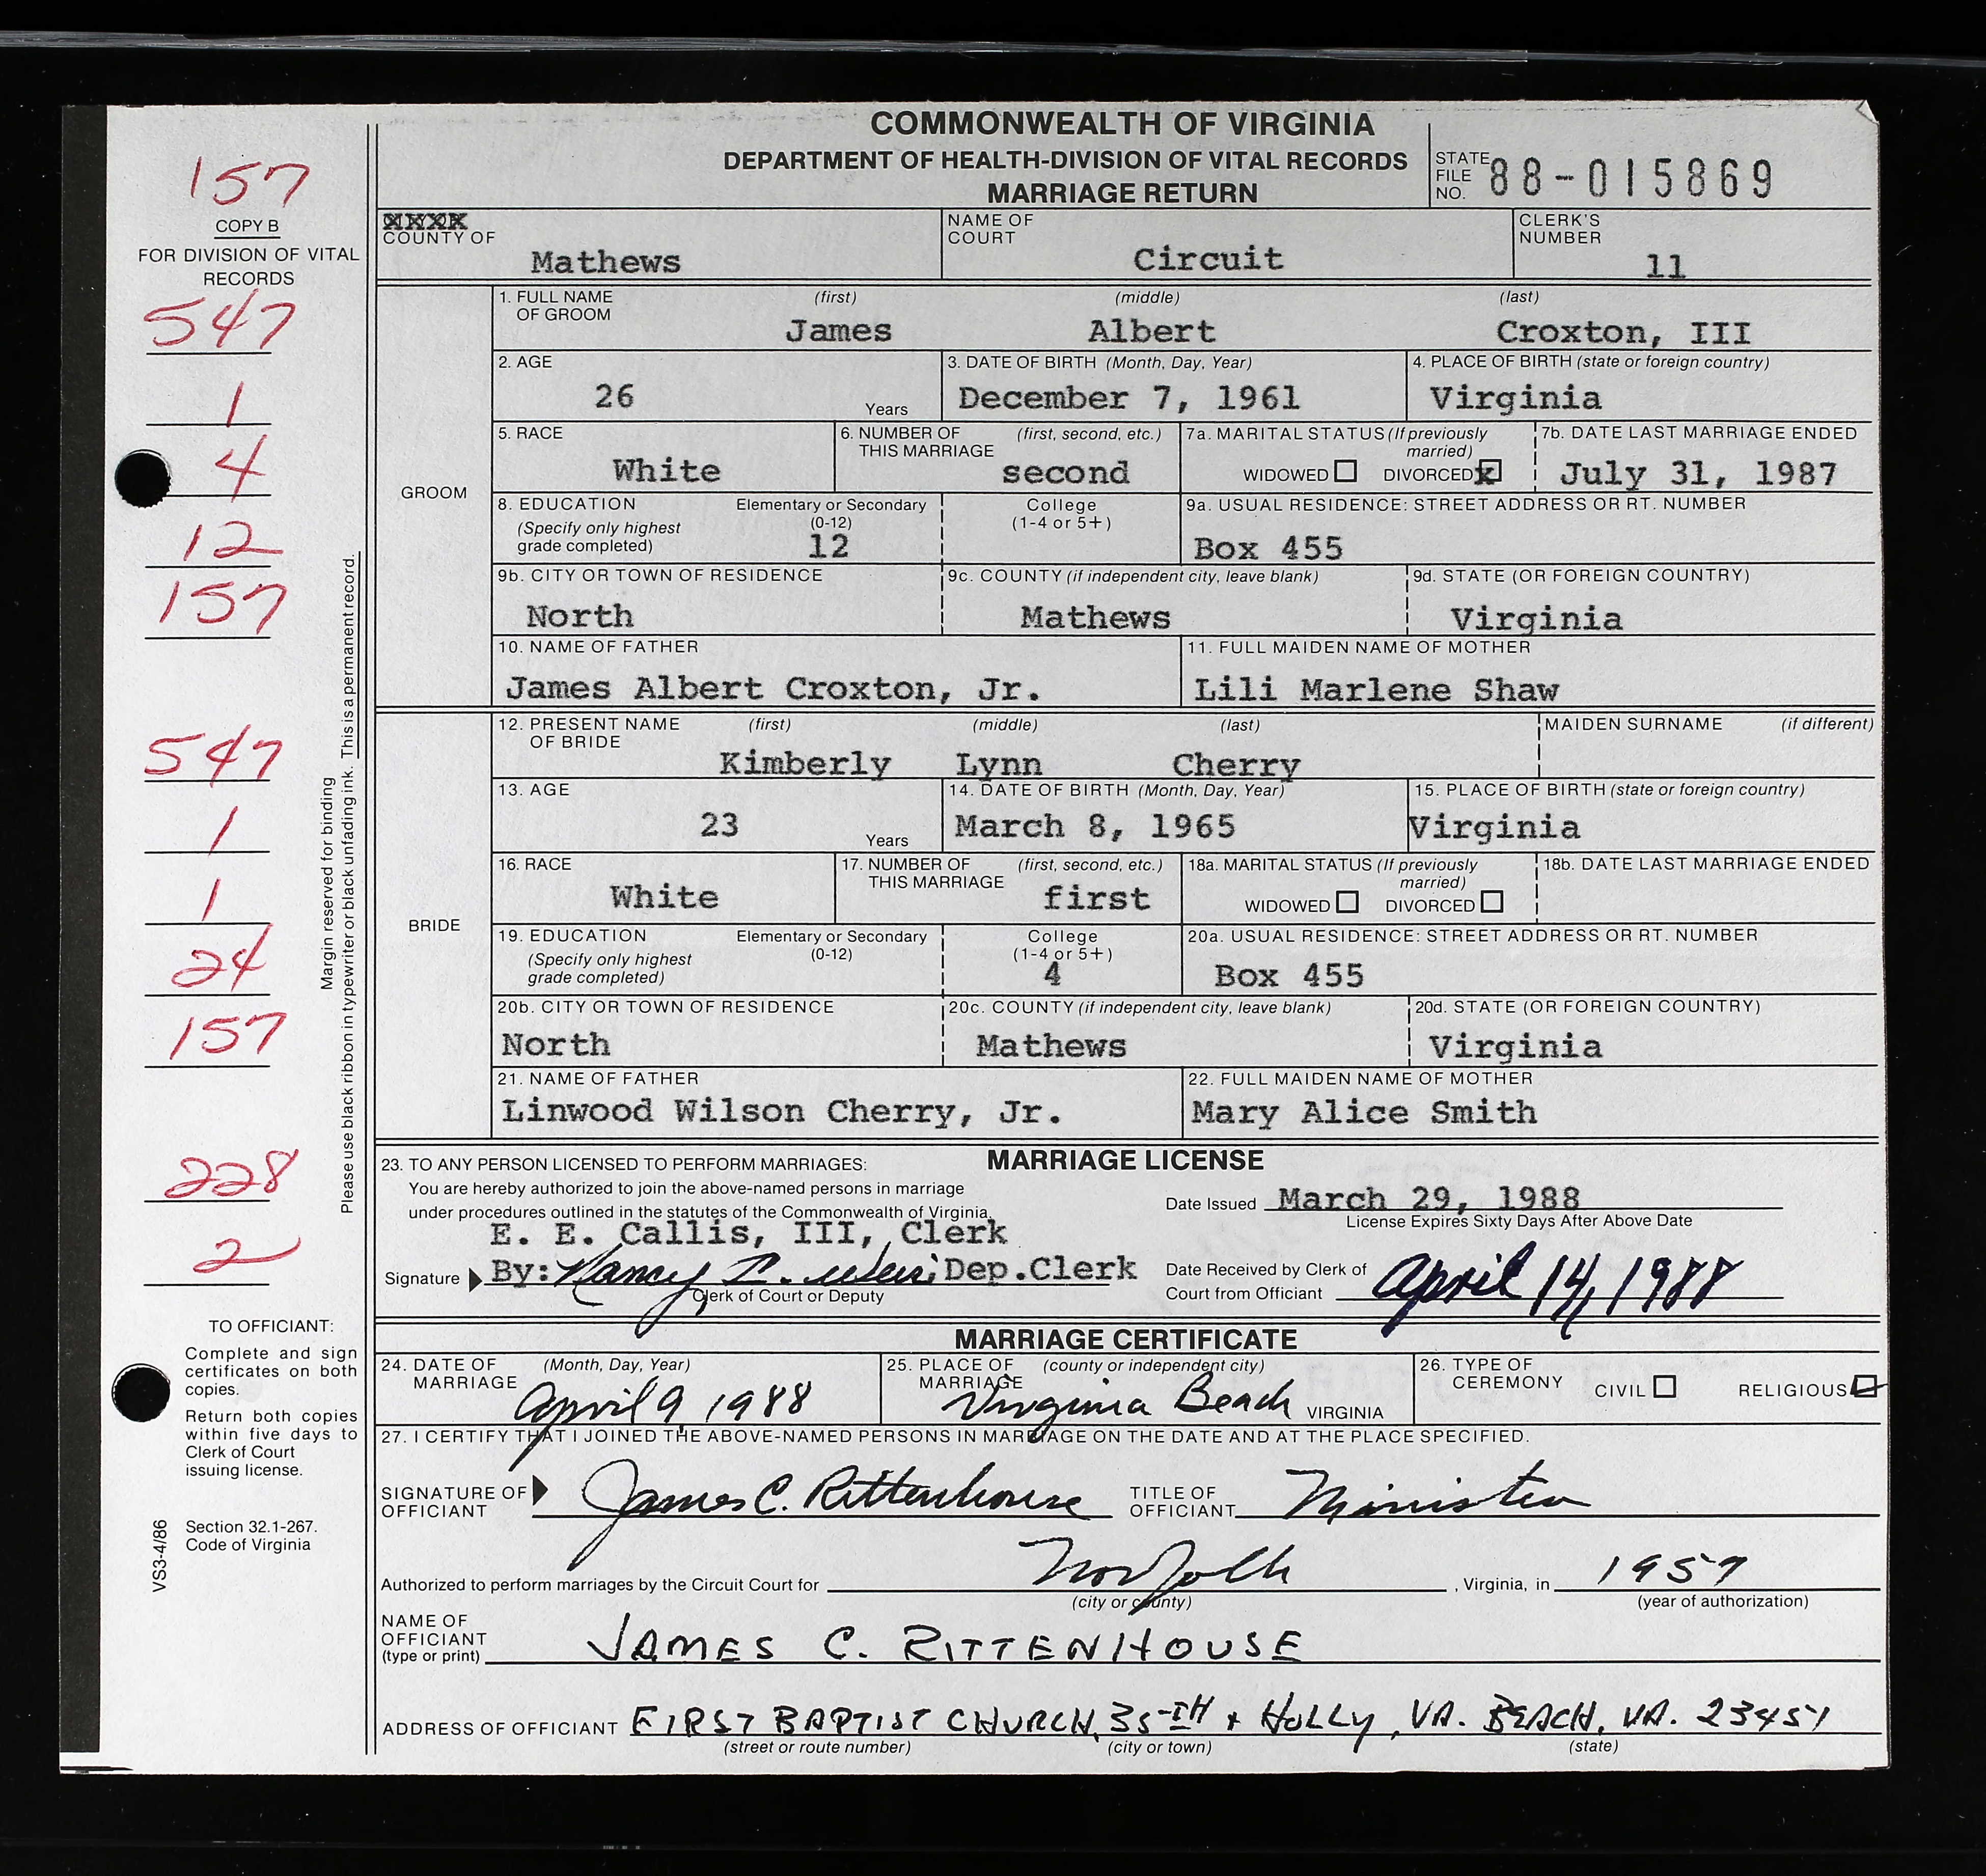 COMMONWEALTH OF VIRGINIA
DEPARTMENT OF HEALTH-DIVISION OF VITAL RECORDS
MARRIAGE RETURN
STATE FILE NO. 88-015869
157
COPY B
FOR DIVISION OF VITAL RECORDS
547
1
4
12
157
547
1
1
24
157
228
2
Margin reserved for binding
Please use black ribbon in typewriter or black unfading ink. This is a permanent record.
TO OFFICIANT:
Complete and sign
certificates on both
copies.
Return both copies
within five days to
Clerk of Court
issuing license.
Section 32.1-267.
Code of Virginia
VS3-4/86
XXXX
COUNTY OF Mathews
NAME OF COURT Circuit
CLERK'S NUMBER 11
GROOM
1. FULL NAME OF GROOM (first) (middle) (last)
James Albert Croxton, III
2. AGE 26 Years
3. DATE OF BIRTH (Month, Day, Year) December 7, 1961
4. PLACE OF BIRTH (state or foreign country) Virginia
5. RACE White
6. NUMBER OF THIS MARRIAGE (first, second, etc.) second
7a. MARITAL STATUS (If previously married) WIDOWED DIVORCED x
7b. DATE LAST MARRIAGE ENDED July 31, 1987
8. EDUCATION (Specify only highest grade completed) Elementary or Secondary (0-12) 12 College (1-4 or 5+)
9a. USUAL RESIDENCE: STREET ADDRESS OR RT. NUMBER Box 455
9b. CITY OR TOWN OF RESIDENCE North
9c. COUNTY (if independent city, leave blank) Mathews
9d. STATE (OR FOREIGN COUNTRY) Virginia
10. NAME OF FATHER James Albert Croxton, Jr.
11. FULL MAIDEN NAME OF MOTHER Lili Marlene Shaw
BRIDE
12. PRESENT NAME OF BRIDE (first) (middle) (last) MAIDEN SURNAME (if different)
Kimberly Lynn Cherry
13. AGE 23 Years
14. DATE OF BIRTH (Month, Day, Year) March 8, 1965
15. PLACE OF BIRTH (state or foreign country) Virginia
16. RACE White
17. NUMBER OF THIS MARRIAGE (first, second, etc.) first
18a. MARITAL STATUS (If previously married) WIDOWED DIVORCED
18b. DATE LAST MARRIAGE ENDED
19. EDUCATION (Specify only highest grade completed) Elementary or Secondary (0-12) College (1-4 or 5+) 4
20a. USUAL RESIDENCE: STREET ADDRESS OR RT. NUMBER Box 455
20b. CITY OR TOWN OF RESIDENCE North
20c. COUNTY (if independent city, leave blank) Mathews
20d. STATE (OR FOREIGN COUNTRY) Virginia
21. NAME OF FATHER Linwood Wilson Cherry, Jr.
22. FULL MAIDEN NAME OF MOTHER Mary Alice Smith
MARRIAGE LICENSE
23. TO ANY PERSON LICENSED TO PERFORM MARRIAGES:
You are hereby authorized to join the above-named persons in marriage
under procedures outlined in the statutes of the Commonwealth of Virginia.
Date Issued March 29, 1988
License Expires Sixty Days After Above Date
E. E. Callis, III, Clerk
Signature By: Nancy Dep.Clerk
Clerk of Court or Deputy
Date Received by Clerk of Court from Officiant April 14, 1988
MARRIAGE CERTIFICATE
24. DATE OF MARRIAGE (Month, Day, Year) April 9, 1988
25. PLACE OF MARRIAGE (county or independent city) Virginia Beach VIRGINIA
26. TYPE OF CEREMONY CIVIL RELIGIOUS
27. I CERTIFY THAT I JOINED THE ABOVE-NAMED PERSONS IN MARRIAGE ON THE DATE AND AT THE PLACE SPECIFIED.
SIGNATURE OF OFFICIANT James C. Rittenhouse
TITLE OF OFFICIANT Minister
Authorized to perform marriages by the Circuit Court for Norfolk, Virginia, in 1957
(city or county) (year of authorization)
NAME OF OFFICIANT (type or print) JAMES C. RITTENHOUSE
ADDRESS OF OFFICIANT FIRST BAPTIST CHURCH, 35TH + HOLLY, VA. BEACH, VA. 23451
(street or route number) (city or town) (state)